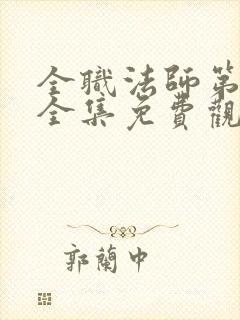 全職法師第
全集免費觀
郭蘭中